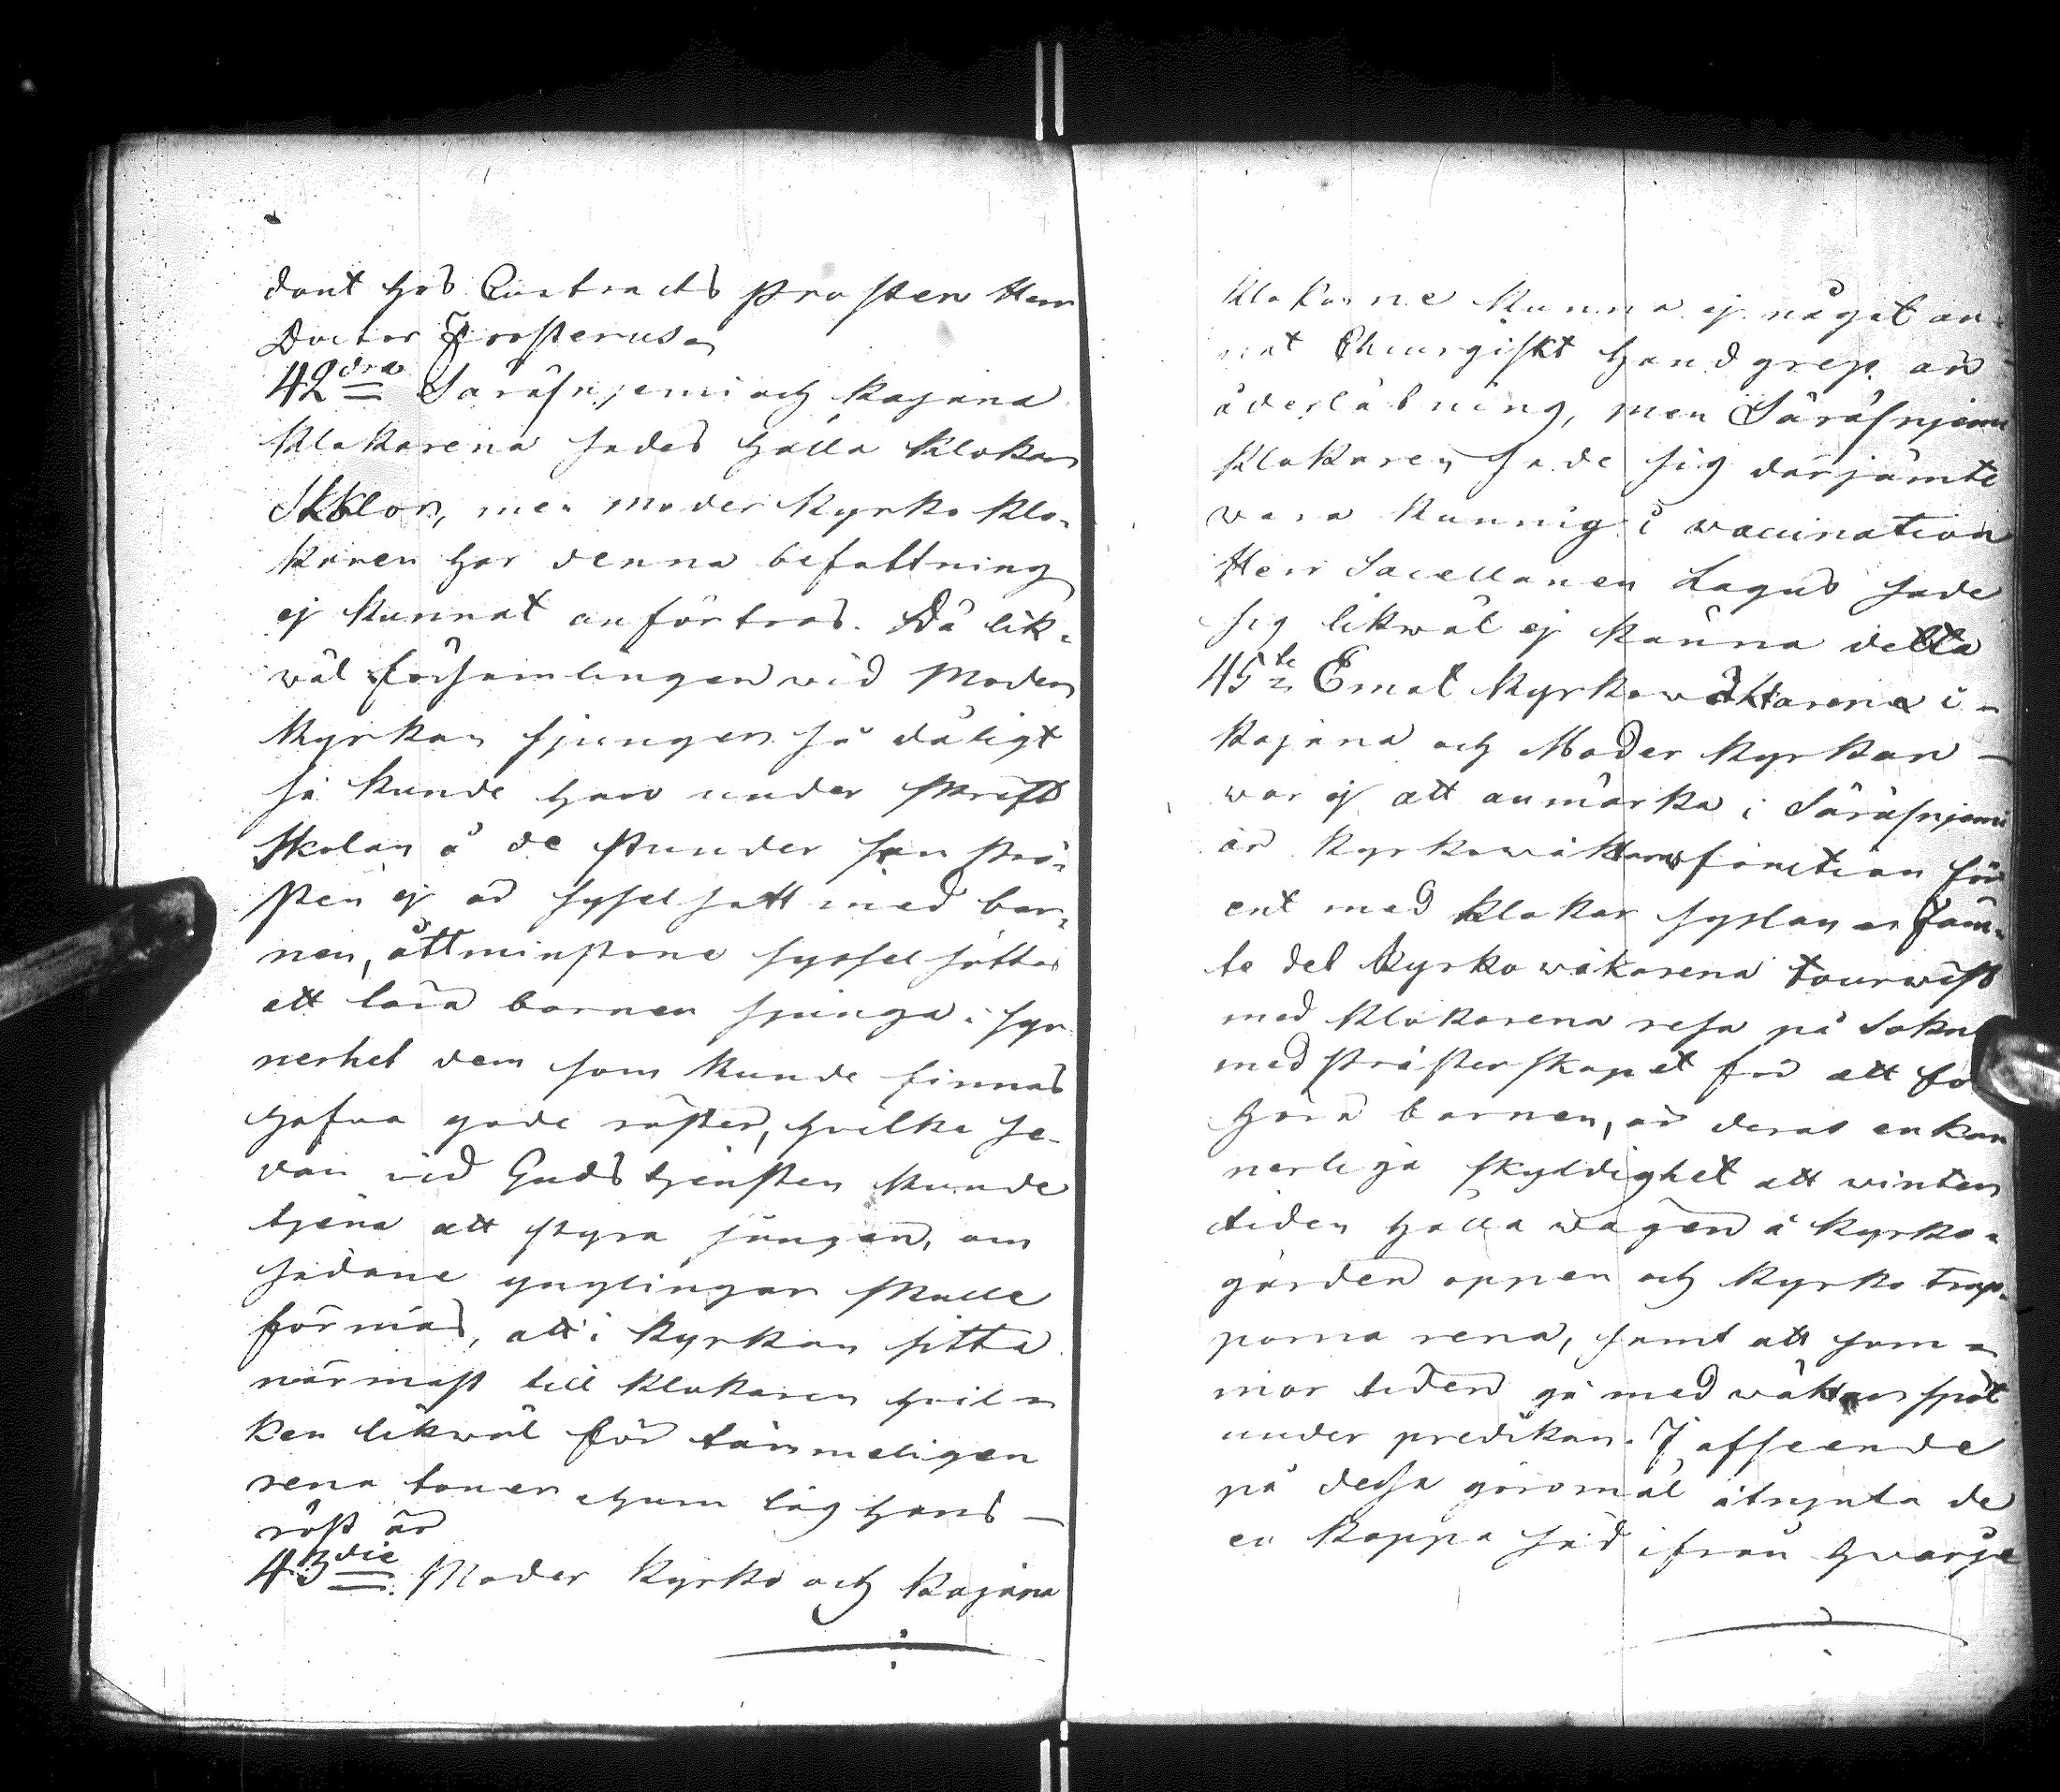 dant hos Contracts Prosten Herr
Doctor Frosterus
42dra Säräisnjemi och Kajana
Klokarena sades hålla Klokar
Skolor, men moder Kyrko Klo-
karen har denna befattning
ej kunnat anförtros. Då lik-
wäl församlingen wid Moder
Kyrkan sjunger så dåligt
så kunde han under Skrift
Skolan å de stunder han Prä-
sten ej är sysselsatt med bar-
nen, åttminstone sysselsättas
att lära barnen sjunga i syn
nerhet dem som kunde finnas
hafva gode röster, hvilka se-
dan vid Gudstjensten kunde
tjena att styra sången, om
sådane ynglingar skulle
förmås, att i Kyrkan sitta
närmast till Klokaren hvil-
ken likwäl för tämmeligen
rena toner ehuru låg hans
röst är
43die Moder Kyrko och Kajana
Klokarne kunna ej något an-
nat Chirurgiskt handgrep än
åderlåtning, men Säräisnjemi
Klokaren sade sig därjämte
vara kunnig i vaccination
Herr Sacellanen Lagus sade
sig likwäl ej känna detta
45te Emot Kyrkowäktarena i
Kajana och Moder Kyrkan
war ej att anmärka i Säräisnjemi
är Kyrkowäktare function för
ent med Klokar sysslan Jäm-
te det Kyrkowäkarena tourwist
med Klokarena resa på Sokne
med Prästerskapet för att för
höra barnen, är deras enkan
nerliga skyldighet att winter
tiden hålla wägen å Kyrko-
gården öppen och Kyrko trap-
porna rena, samt att som
mor tiden gå med wäktar spöt
under predikan. I afseende
på dessa göromål åtnjuta de
en Kappa säd ifrån hvarje